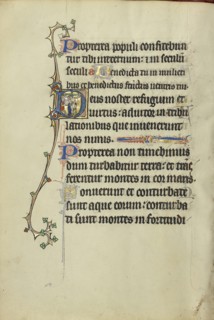 Propterea populi confitebun
tur tibi in eternum: i in seculū
seculi Benedicta tu in mulieri
bus et benedictus fructus uentris tui.
Deus noster refugium et
uirtus: adiutor in tribu
lationibus que inuenerunt
nos nimis.
Propterea non timebimus
dum turbabitur terra: et trās
ferentur montes in cor maris.
Sonuerunt et conturbate
sunt aque eorum: conturba
ti sunt montes in fortitudi